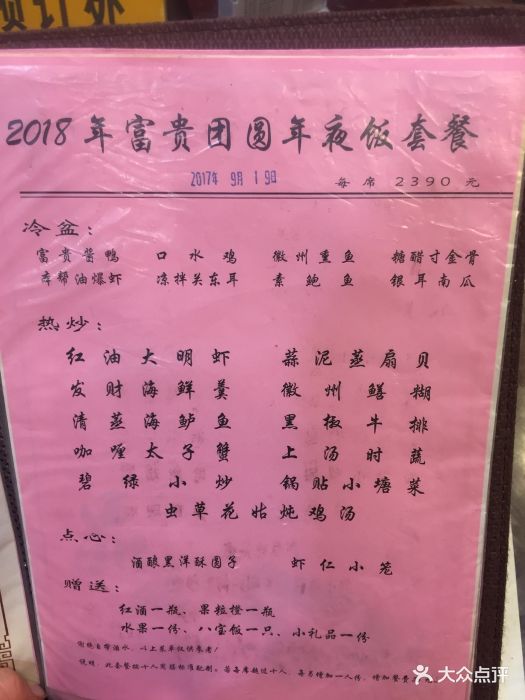 预订处
2018年富贵团圆年夜饭套餐
2017年 9月 19日 每席 2390元
冷盆：
富贵酱鸭 口水鸡 徽州熏鱼 糖醋寸金骨
本帮油爆虾 凉拌关东耳 素鲍鱼 银耳南瓜
热炒：
红油大明虾 蒜泥蒸扇贝
发财海鲜羹 徽州鳝糊
清蒸海鲈鱼 黑椒牛排
咖喱太子蟹 上汤时蔬
碧绿小炒 锅贴小塘菜
虫草花菇炖鸡汤
点心：
酒酿黑洋酥圆子 虾仁小笼
赠送：
红酒一瓶、果粒橙一瓶
水果一份、八宝饭一只、小礼品一份
谢绝自带酒水，以上菜单仅供参考！
说明：此套餐按十人用膳标准配制，若每席超过十人，每另增加一人份，增加餐费
大众点评